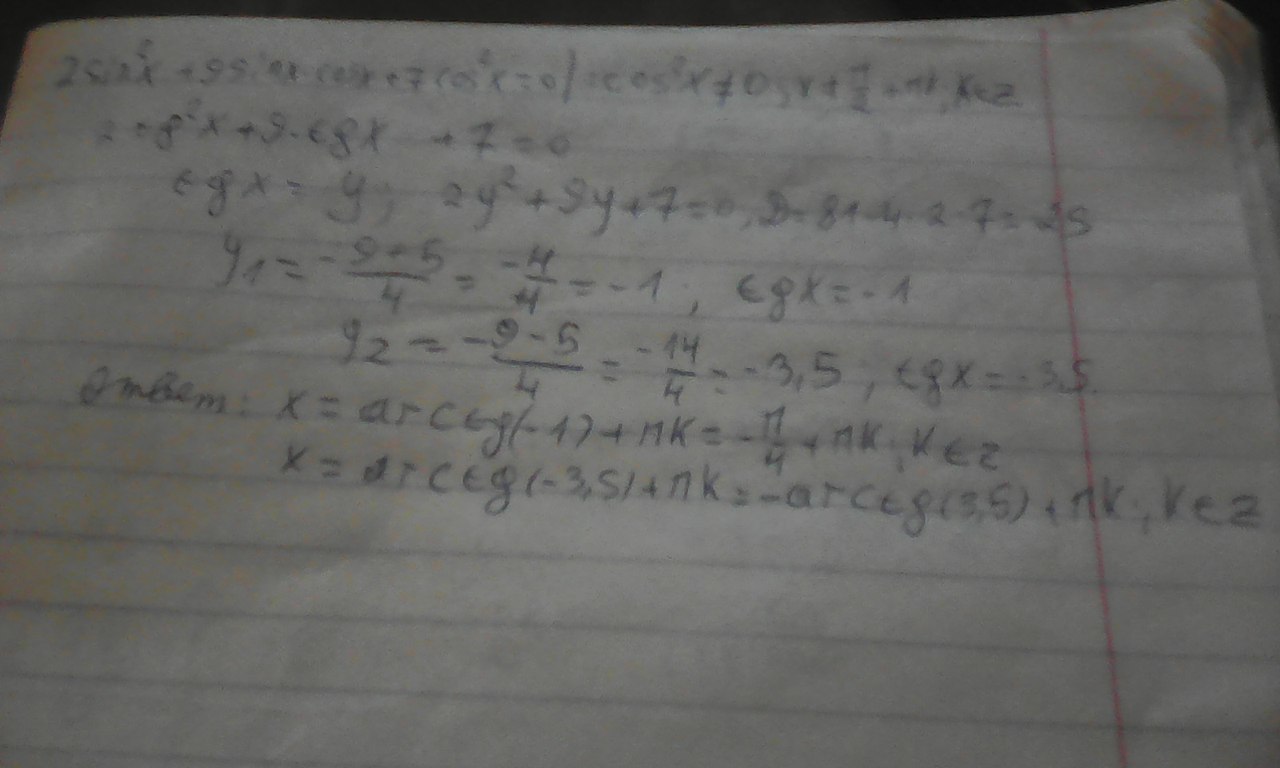 2sin²x + 9sinx cosx + 7cos²x = 0 | : cos²x ≠ 0, x ≠ π/2 + πk, k∈z
2tg²x + 9·tgx + 7 = 0
tgx = y; 2y² + 9y + 7 = 0, D = 81 - 4·2·7 = 25
y₁ = (-9+5)/4 = -4/4 = -1; tgx = -1
y₂ = (-9-5)/4 = -14/4 = -3,5; tgx = -3,5.
Ответ: x = arctg(-1) + πk = -π/4 + πk, k∈z
x = arctg(-3,5) + πk = -arctg(3,5) + πk, k∈z